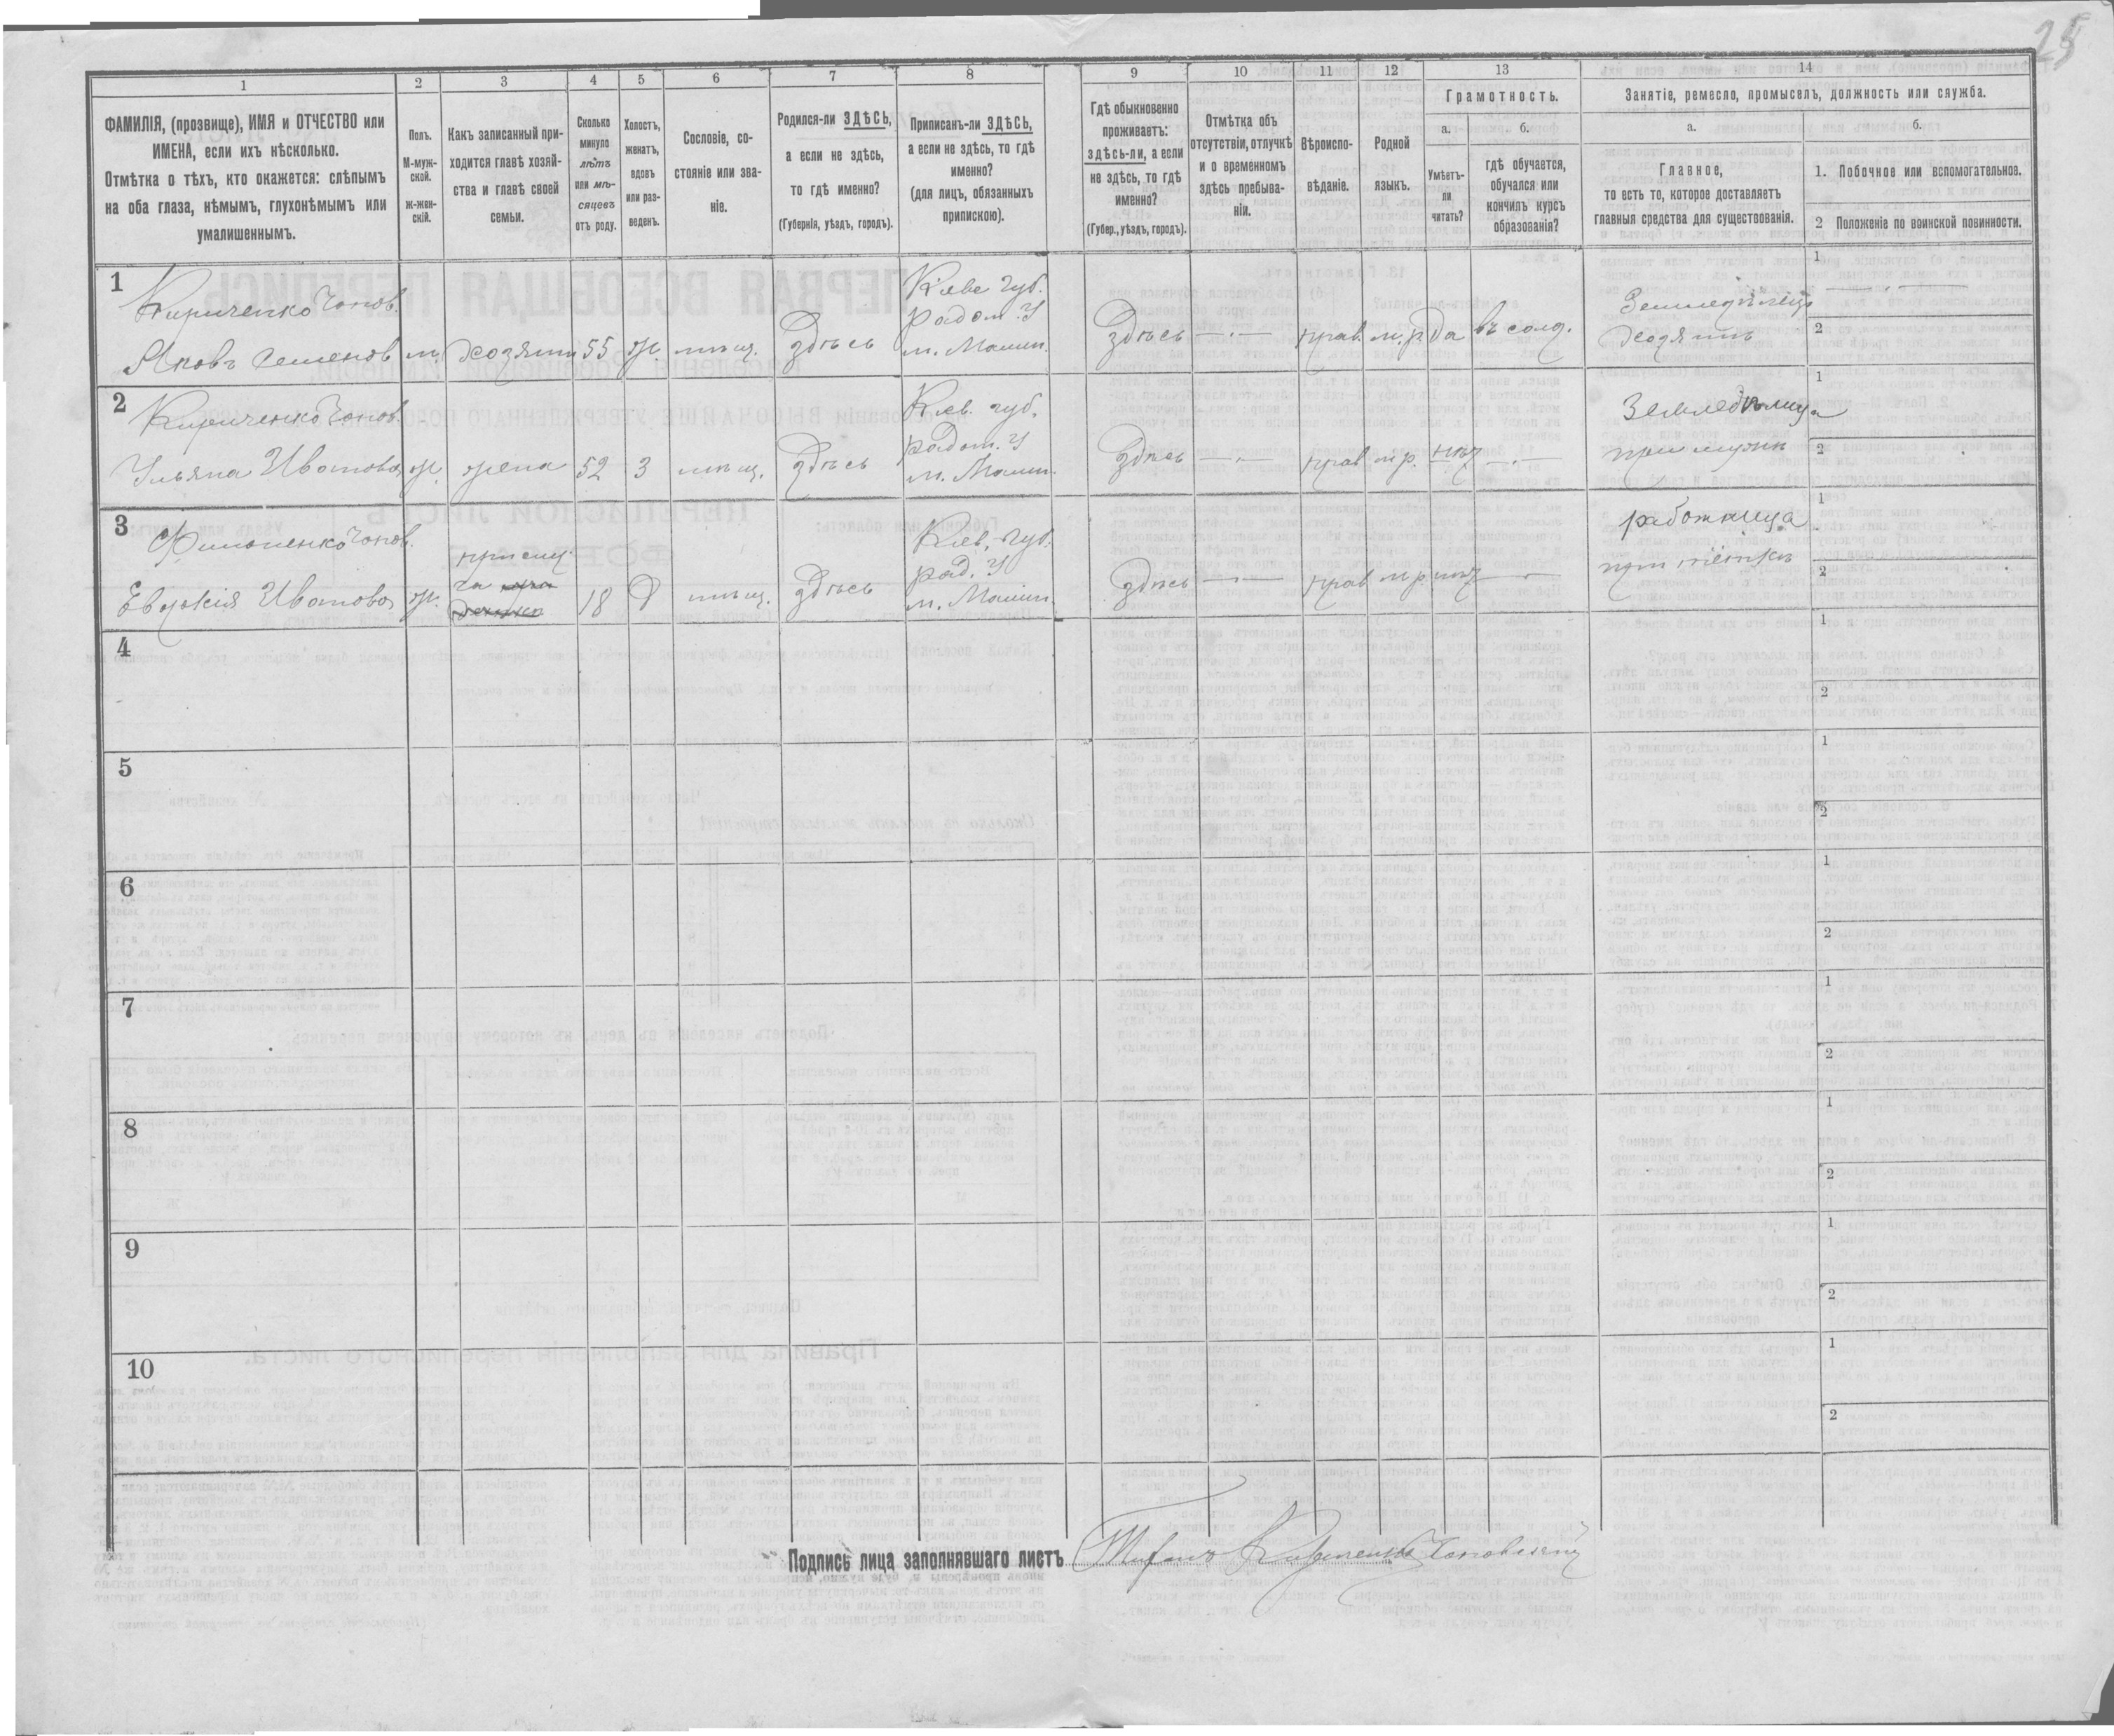 25
1
2
3
4
5
6
7
8
9
10
11
12
13
14
ФАМИЛІЯ, (прозвище), ИМЯ и ОТЧЕСТВО или
ИМЕНА, если ихъ нѣсколько.
Отмѣтка о тѣхъ, кто окажется: слѣпымъ
на оба глаза, нѣмымъ, глухонѣмымъ или
умалишеннымъ.
Полъ.
М-муж-
ской.
ж-жен-
скій.
Какъ записанный при-
ходится главѣ хозяй-
ства и главѣ своей
семьи.
Сколько
минуло
лѣтъ
или мѣ-
сяцевъ
отъ роду.
Холостъ,
женатъ,
вдовъ
или раз-
веденъ.
Сословіе, со-
стояніе или зва-
ніе.
Родился-ли ЗДѢСЬ,
а если не здѣсь,
то гдѣ именно?
(Губернія, уѣздъ, городъ).
Приписанъ-ли ЗДѢСЬ,
а если не здѣсь, то гдѣ
именно?
(для лицъ, обязанныхъ
припискою).
Гдѣ обыкновенно
проживаетъ:
здѣсь-ли, а если
не здѣсь, то гдѣ
именно?
(Губер., уѣздъ, городъ).
Отмѣтка объ
отсутствіи, отлучкѣ
и о временномъ
здѣсь пребыва-
ніи.
Вѣроиспо-
вѣданіе.
Родной
языкъ.
Грамотность.
а.
Умѣетъ-
ли
читать?
б.
гдѣ обучается,
обучался или
кончилъ курсъ
образованія?
Занятіе, ремесло, промыселъ, должность или служба.
а.
Главное,
то есть то, которое доставляетъ
главныя средства для существованія.
б.
1. Побочное или вспомогательное.
2 Положеніе по воинской повинности.
1
Кириченко Чопов.
Яковъ Семенов м. Хозяин 55 ж. мѣщ. Здѣсь
Кіев. Губ.
Радом. У
м. Малин.
Здѣсь прав. м.р. да въ солд.
Хозяинъ
1
2
2
Кириченко Чопов.
Ульяна Иванова ж. жена 52 З мѣщ. Здѣсь
Кіев. губ.
радом. У
м. Малин.
Здѣсь прав м.р. нѣт
Земледѣлица
при мужѣ
1
2
3
Филоненко Чопов.
Евдокія Иванова ж. 18 Д мѣщ. Здѣсь
Кіев. Губ.
рад. У
м. Малин.
Здѣсь прав м.р. нѣт
работница
при тёткѣ
1
2
4
1
2
5
1
2
6
1
2
7
1
2
8
1
2
9
1
2
10
1
2
Подпись лица заполнявшаго листъ